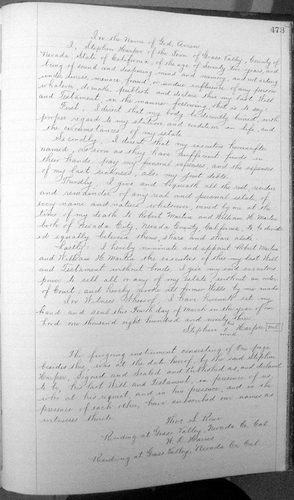 473
In the Name of God, Amen.
I, Stephen Harper of the Town of Grass Valley, County of
Nevada, State of California, of the age of seventy two years, and
being of sound and disposing mind and memory, and not acting
under duress, menace, fraud, or undue influence of any person
whatever, do make, publish and declare this my last Will
and Testament, in the manner following, that is to say:
First, I direct that my body be decently buried, with
proper regard to my station and condition in life, and
the circumstances of my estate.
Secondly, I direct that my executors hereinafter
named, as soon as they have sufficient funds in
their hands, pay my funeral expenses, and the expenses
of my last sickness, also my just debts.
Thirdly, I give and bequeath all the rest, residue
and remainder of my real and personal estate, of
every name and nature whatsoever, owned by me at the
time of my death to Robert Martin and William H. Martin
both of Nevada City, Nevada County, California, to be divid-
ed equally between them, share and share alike.
Lastly, I hereby nominate and appoint Robert Martin
and William H. Martin the executors of this my last Will
and Testament without bonds, I give my said executors
power to sell all or any of my Estate without an order
of Court; and hereby revoke all former Wills by me made.
In Witness Whereof, I have hereunto set my
hand and seal this day of March in the year of our
Lord one thousand eight hundred and ninety
Stephen Harper
The foregoing instrument consisting of one page
besides this, was at the date hereof, by the said Stephen
Harper, signed and sealed and published as, and declared
to be his last Will and Testament, in presence of us
who at his request and in his presence, and in the
presence of each other, have subscribed our names as
witnesses thereto.
Residing at Grass Valley, Nevada Co. Cal.
Residing at Grass Valley, Nevada Co. Cal.